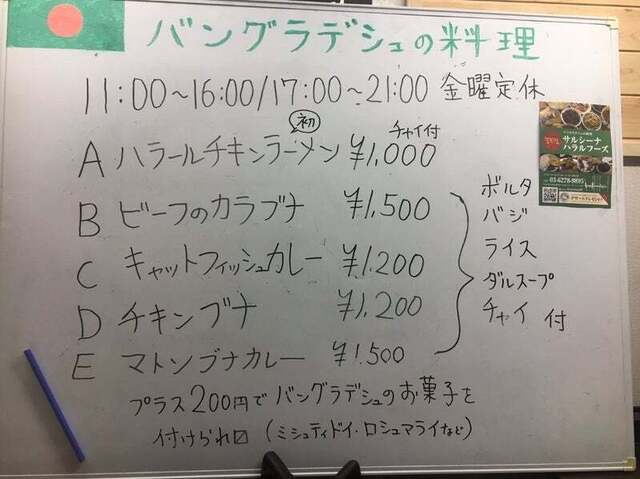 バングラデシュの料理
11:00~16:00/17:00~21:00 金曜定休
初
チャイ付
A ハラールチキンラーメン ¥1,000
B ビーフのカラブナ ¥1,500
C キャットフィッシュカレー ¥1.200
D チキンブナ ¥1,200
E マトンブナカレー ¥1.500
ボルタ
バジ
ライス
ダルスープ
チャイ 付
プラス200円でバングラデシュのお菓子を
付けられ
(ミシュティドイ・ロシュマライなど)
サルシーナ
ハラルフーズ
03-6278-8895